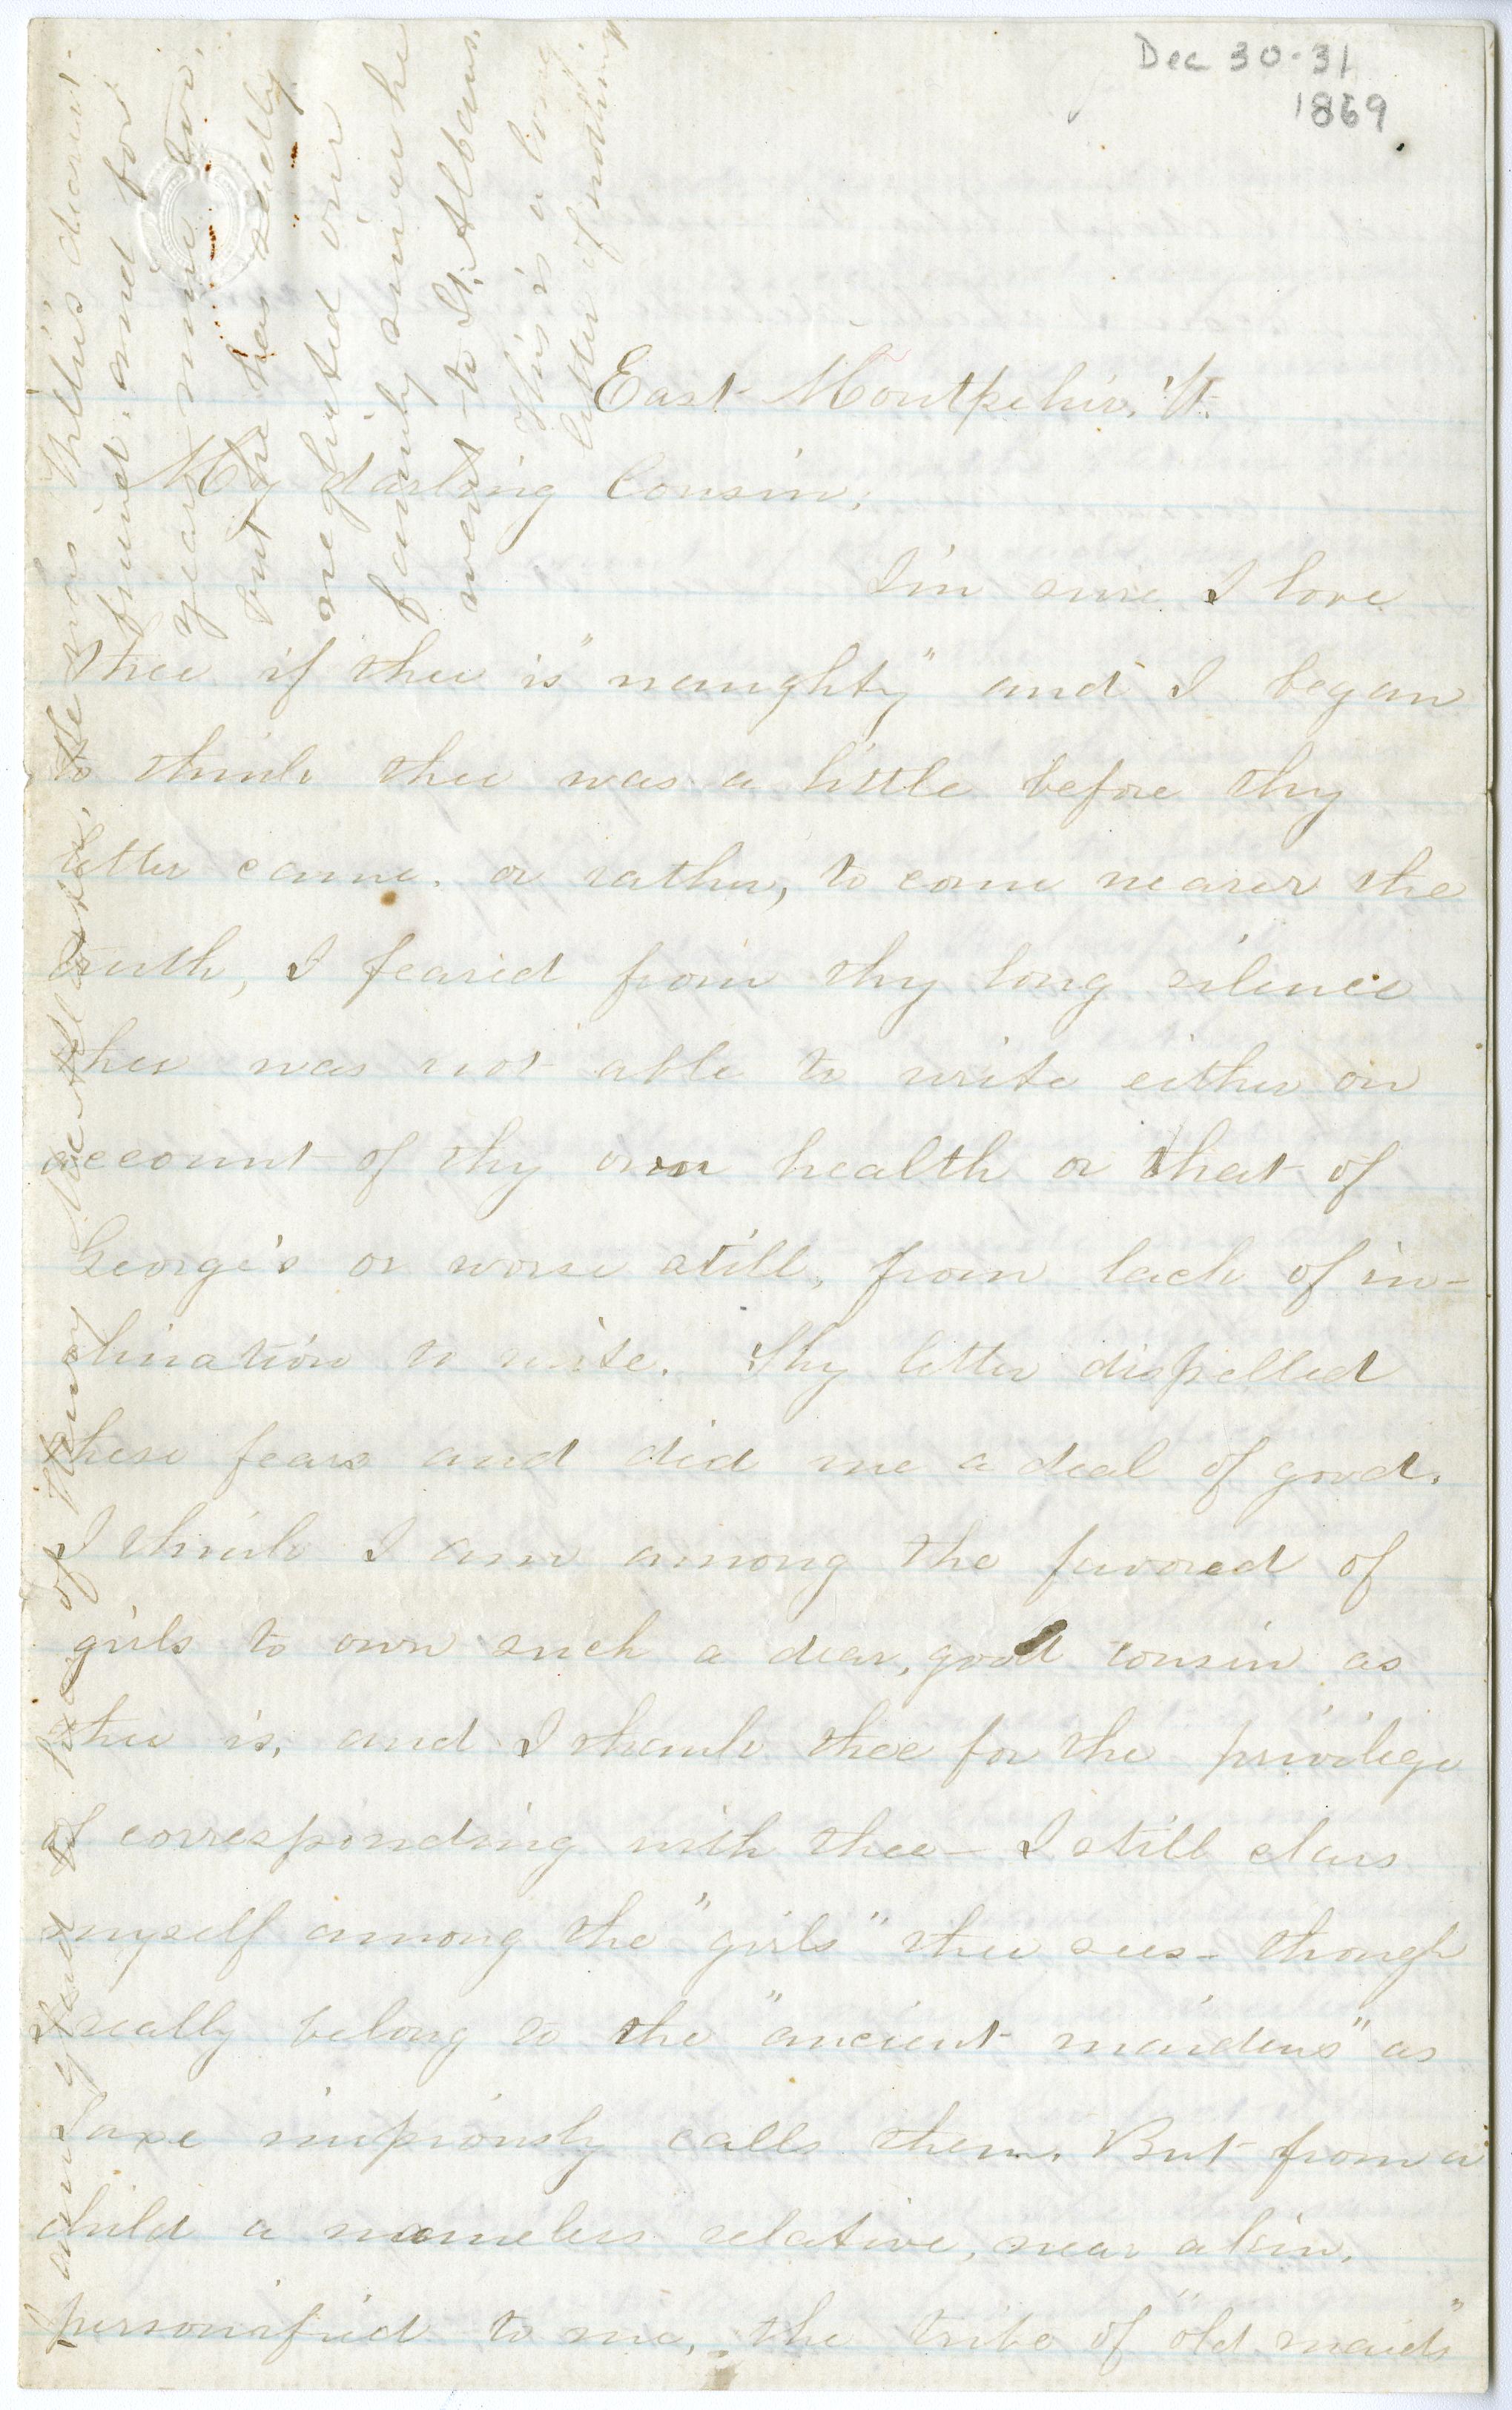 Dec 30-31
1869
East Montpelier, Vt.
My darling Cousin;
I'm sure I love
thee if thee is "naughty" and I began
to think thee was a little before thy
letter came. or rather, to come nearer the
truth, I feared from thy long silence
thee was not able to write either on
account of thy own health or that of
George's or worse still, from lack of in-
clination to write. Thy letter dispelled
these fears and did me a deal of good.
I think I am among the favored of
girls to own such a dear, good cousin as
thee is, and I thank thee for the privilege
of corresponding with thee - I still class
myself among the "girls" thee sees - though
I really belong to the "ancient maidens" as
Saxe impiously calls them. But from a
child a nameless relative, near akin,
personified to me, the tribe of "old maids"
am glad to hear of Henry
was Willie's dearest
friend, and for
years mine too,
but he has sadly
neglected our
family since he
went to St. Albans.
This is a long
letter of nothing